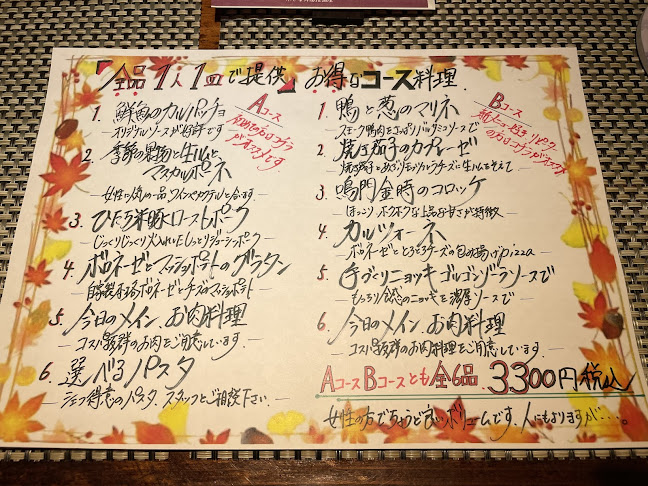 「全品1人1皿で提供」お得なコース料理.
Aコース
1. 鮮魚のカルパッチョ
オリジナルソースが好評です
2. 季節の果物と生ハムと
マスカルポーネ
女性の人気の一品 ワインやカクテルと合います
3. ひたち米豚ローストポーク
じっくりじっくり火入れしたしっとりジューシーポーク
4. ボロネーゼとマッシュポテトのグラタン
自家製ボロネーゼとチーズのマッシュポテト
5. 今日のメイン、お肉料理
コスパ抜群のお肉をご用意しています.
6. 選べるパスタ
シェフ得意のパスタ、スタッフとご相談下さい.
Bコース
1. 鴨と葱のマリネ
スモーク鴨肉をさっぱりバルサミコソースで
2. 焼き茄子のカプレーゼ
焼き茄子と モッツァレラチーズに生ハムをそえて
3. 鳴門金時のコロッケ
ほっこり、ホクホクな上品な甘さが特徴
4. カルツォーネ
ボロネーゼととろとろチーズの包み揚げpizza
5 手づくりニョッキゴルゴンゾーラソースで
もっちり食感のニョッキを濃厚ソースで
6. 今日のメイン、お肉料理
コスパ抜群のお肉料理をご用意しています.
AコースBコースとも全6品、3300円税込
女性の方でちょうど良いボリュームです、人にもよりますが…。